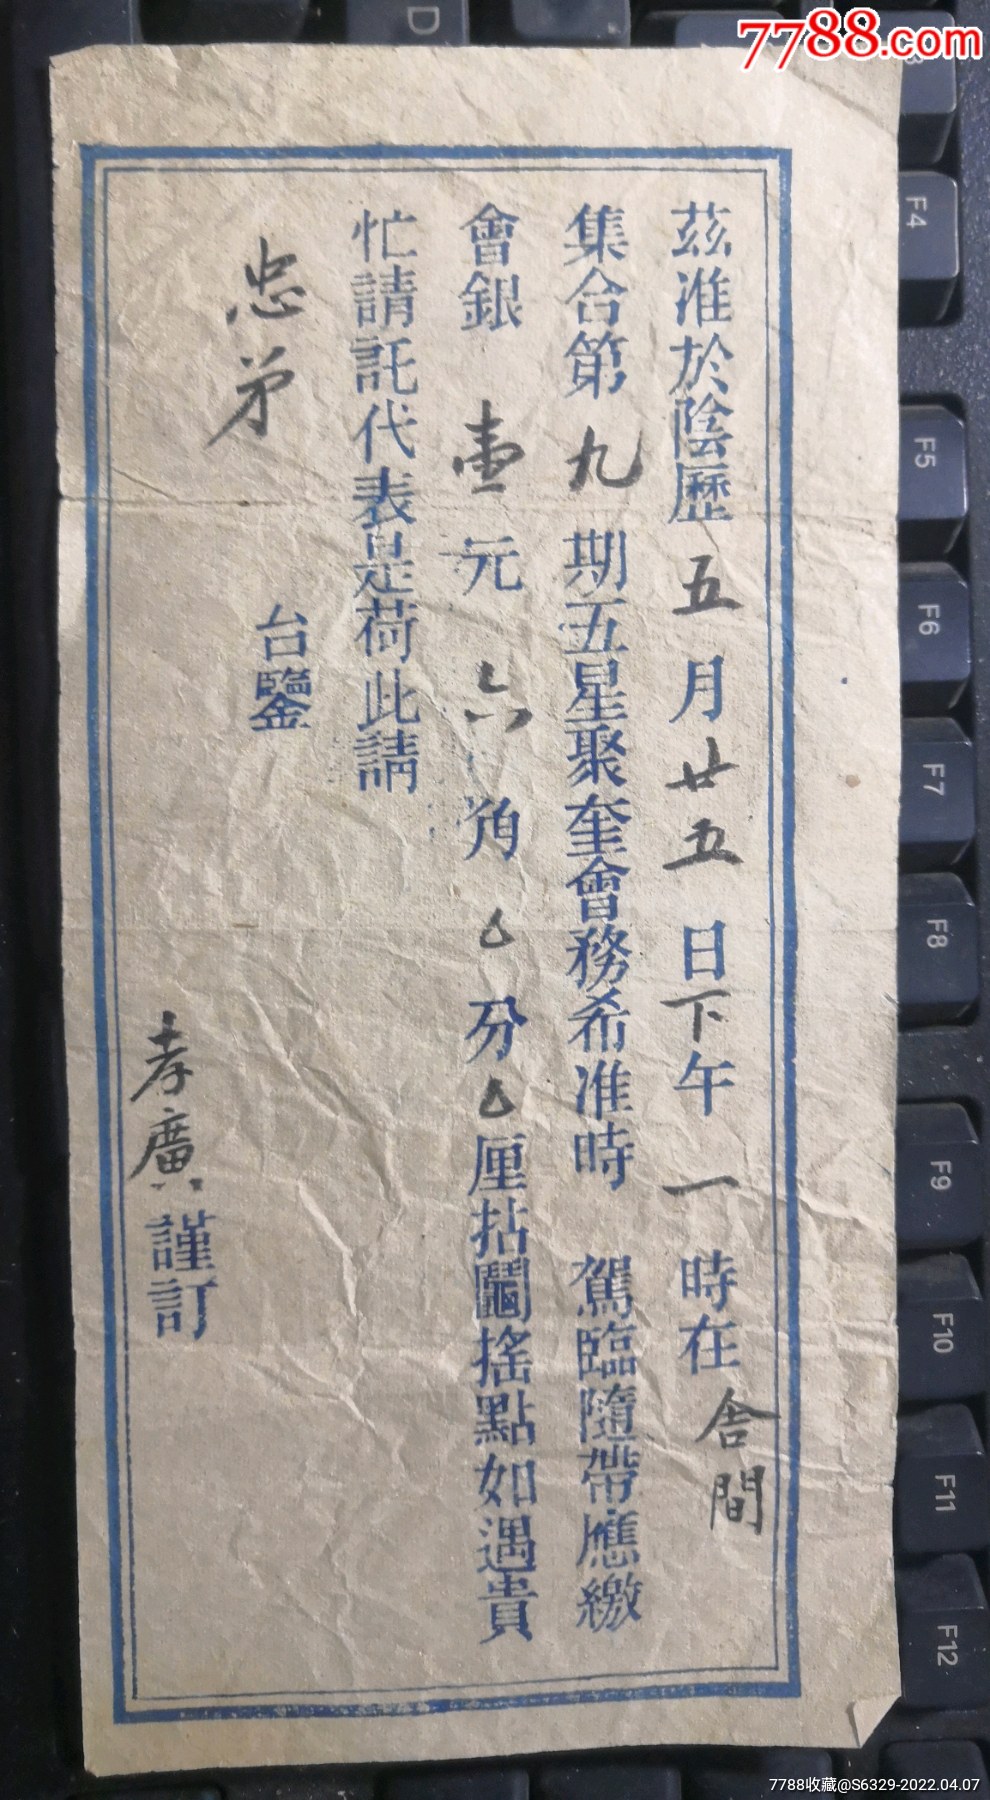 茲准於陰歷五月廿五日下午一時在舍間
集合第九期五星聚奎會務希准時 駕臨隨帶應繳
會銀壹元六角△分△厘拈鬮搖點如遇貴
忙請託代表是荷此請
忠弟 台鑒
孝廣謹訂
7788.com
D
F4
F5
F6
F7
F8
F9
F10
F11
F12
7788收藏@S6329-2022.04.07